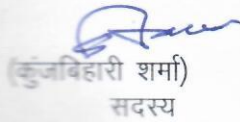 (कुंजबिहारी शर्मा)
सदस्य